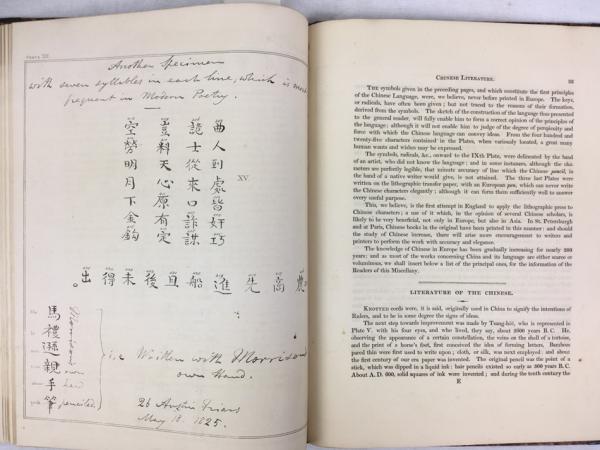 Another Specimen
with seven syllables in each line, which is most
frequent in Modern Poetry.
曲人到處皆奸巧
詭士從來口詐謀
豈料天心原有定
空勞明月下金鈎
XV
先進船直後未得出。
馬禮遜親手筆
own
penciled.
i.e. Written with Morrison's
own Hand.
26 Austin Friars
May 18. 1825.
CHINESE LITERATURE.
THE symbols given in the preceding pages, and which constitute the first principles
of the Chinese Language, were, we believe, never before printed in Europe. The keys,
or radicals, have often been given; but not traced to the reasons of their formation,
derived from the symbols. The sketch of the construction of the language thus presented
to the general reader, will fully enable him to form a correct opinion of the principles of
the language; although it will not enable him to judge of the degree of perspicuity and
force with which the Chinese language can convey ideas. From the four hundred and
twenty-five characters contained in the Plates, when variously located, a great many
human wants and wishes may be expressed.
The symbols, radicals, &c., onward to the IXth Plate, were delineated by the hand
of an artist, who did not know the language; and in some instances, although the cha-
racters are perfectly legible, that minute accuracy of line which the Chinese pencil, in
the hand of a native writer would give, is not attained. The three last Plates were
written on the lithographic transfer paper, with an European pen, which can never write
the Chinese characters elegantly; although it can form them sufficiently well to answer
every useful purpose.
This, we believe, is the first attempt in England to apply the lithographic press to
Chinese characters; a use of which, in the opinion of several Chinese scholars, is
likely to be very beneficial, not only in Europe, but also in Asia. In St. Petersburgh
and at Paris, Chinese books in the original have been printed in this manner: and should
the study of Chinese increase, there will arise more encouragement to writers and
printers to perform the work with accuracy and elegance.
The knowledge of Chinese in Europe has been gradually increasing for nearly 200
years; and as most of the works concerning China and its language are either scarce or
voluminous, we shall insert below a list of the principal ones, for the information of the
Readers of this Miscellany.
LITERATURE OF THE CHINESE.
KNOTTED cords were, it is said, originally used in China to signify the intentions of
Rulers, and to be in some degree the signs of ideas.
The next step towards improvement was made by Tsang-hëë, who is represented in
Plate V. with his four eyes, and who lived, they say, about 2600 years B. C. He,
observing the appearance of a certain constellation, the veins on the shell of a tortoise,
and the print of a horse's foot, first conceived the idea of forming letters. Bamboos
pared thin were first used to write upon; cloth, or silk, was next employed: and about
the first century of our era paper was invented. The original pencil was the point of a
stick, which was dipped in a liquid ink: hair pencils existed so early as 300 years B. C.
About A. D. 600, solid squares of ink were invented; and during the tenth century the
E